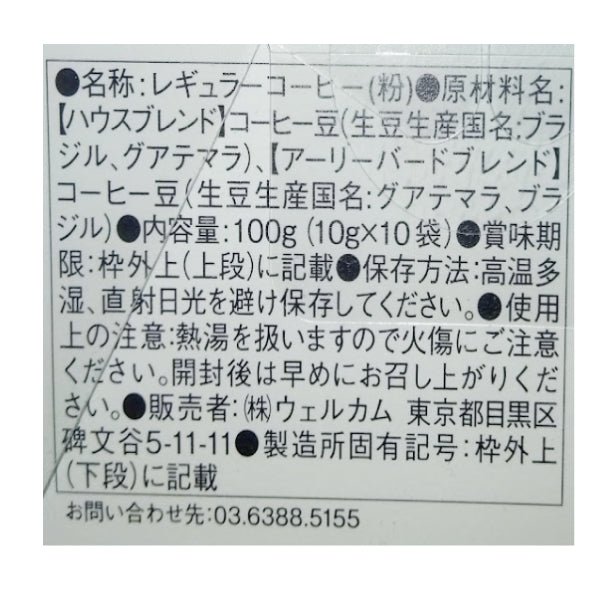 ●名称:レギュラーコーヒー(粉)●原材料名:
【ハウスブレンド】コーヒー豆(生豆生産国名:ブラ
ジル、グアテマラ)、【アーリーバードブレンド】
コーヒー豆(生豆生産国名:グアテマラ、ブラ
ジル)●内容量:100g (10g×10袋)●賞味期
限:枠外上(上段)に記載●保存方法:高温多
湿、直射日光を避け保存してください。●使用
上の注意:熱湯を扱いますので火傷にご注意
ください。開封後は早めにお召し上がりくだ
さい。●販売者:㈱ウェルカム 東京都目黒区
碑文谷5-11-11●製造所固有記号:枠外上
(下段)に記載
お問い合わせ先:03.6388.5155